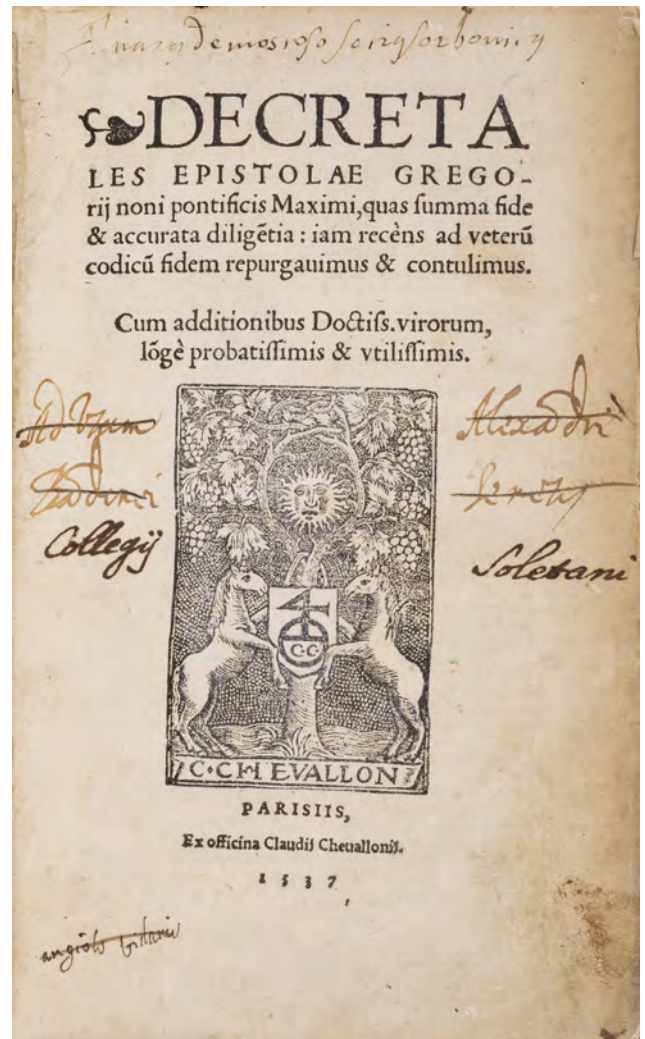 DECRETA
LES EPISTOLAE GREGO-
rij noni pontificis Maximi,quas summa fide
& accurata diligẽtia : iam recèns ad veterũ
codicũ fidem repurgauimus & contulimus.
Cum additionibus Doctiss.virorum,
lõgè probatissimis & vtilissimis.
Ad Vsum
Alexãdri
Collegij
Soletani
C C
C·CHEVALLON
PARISIIS,
Ex officina Claudij Cheuallonij.
1537
angiolo